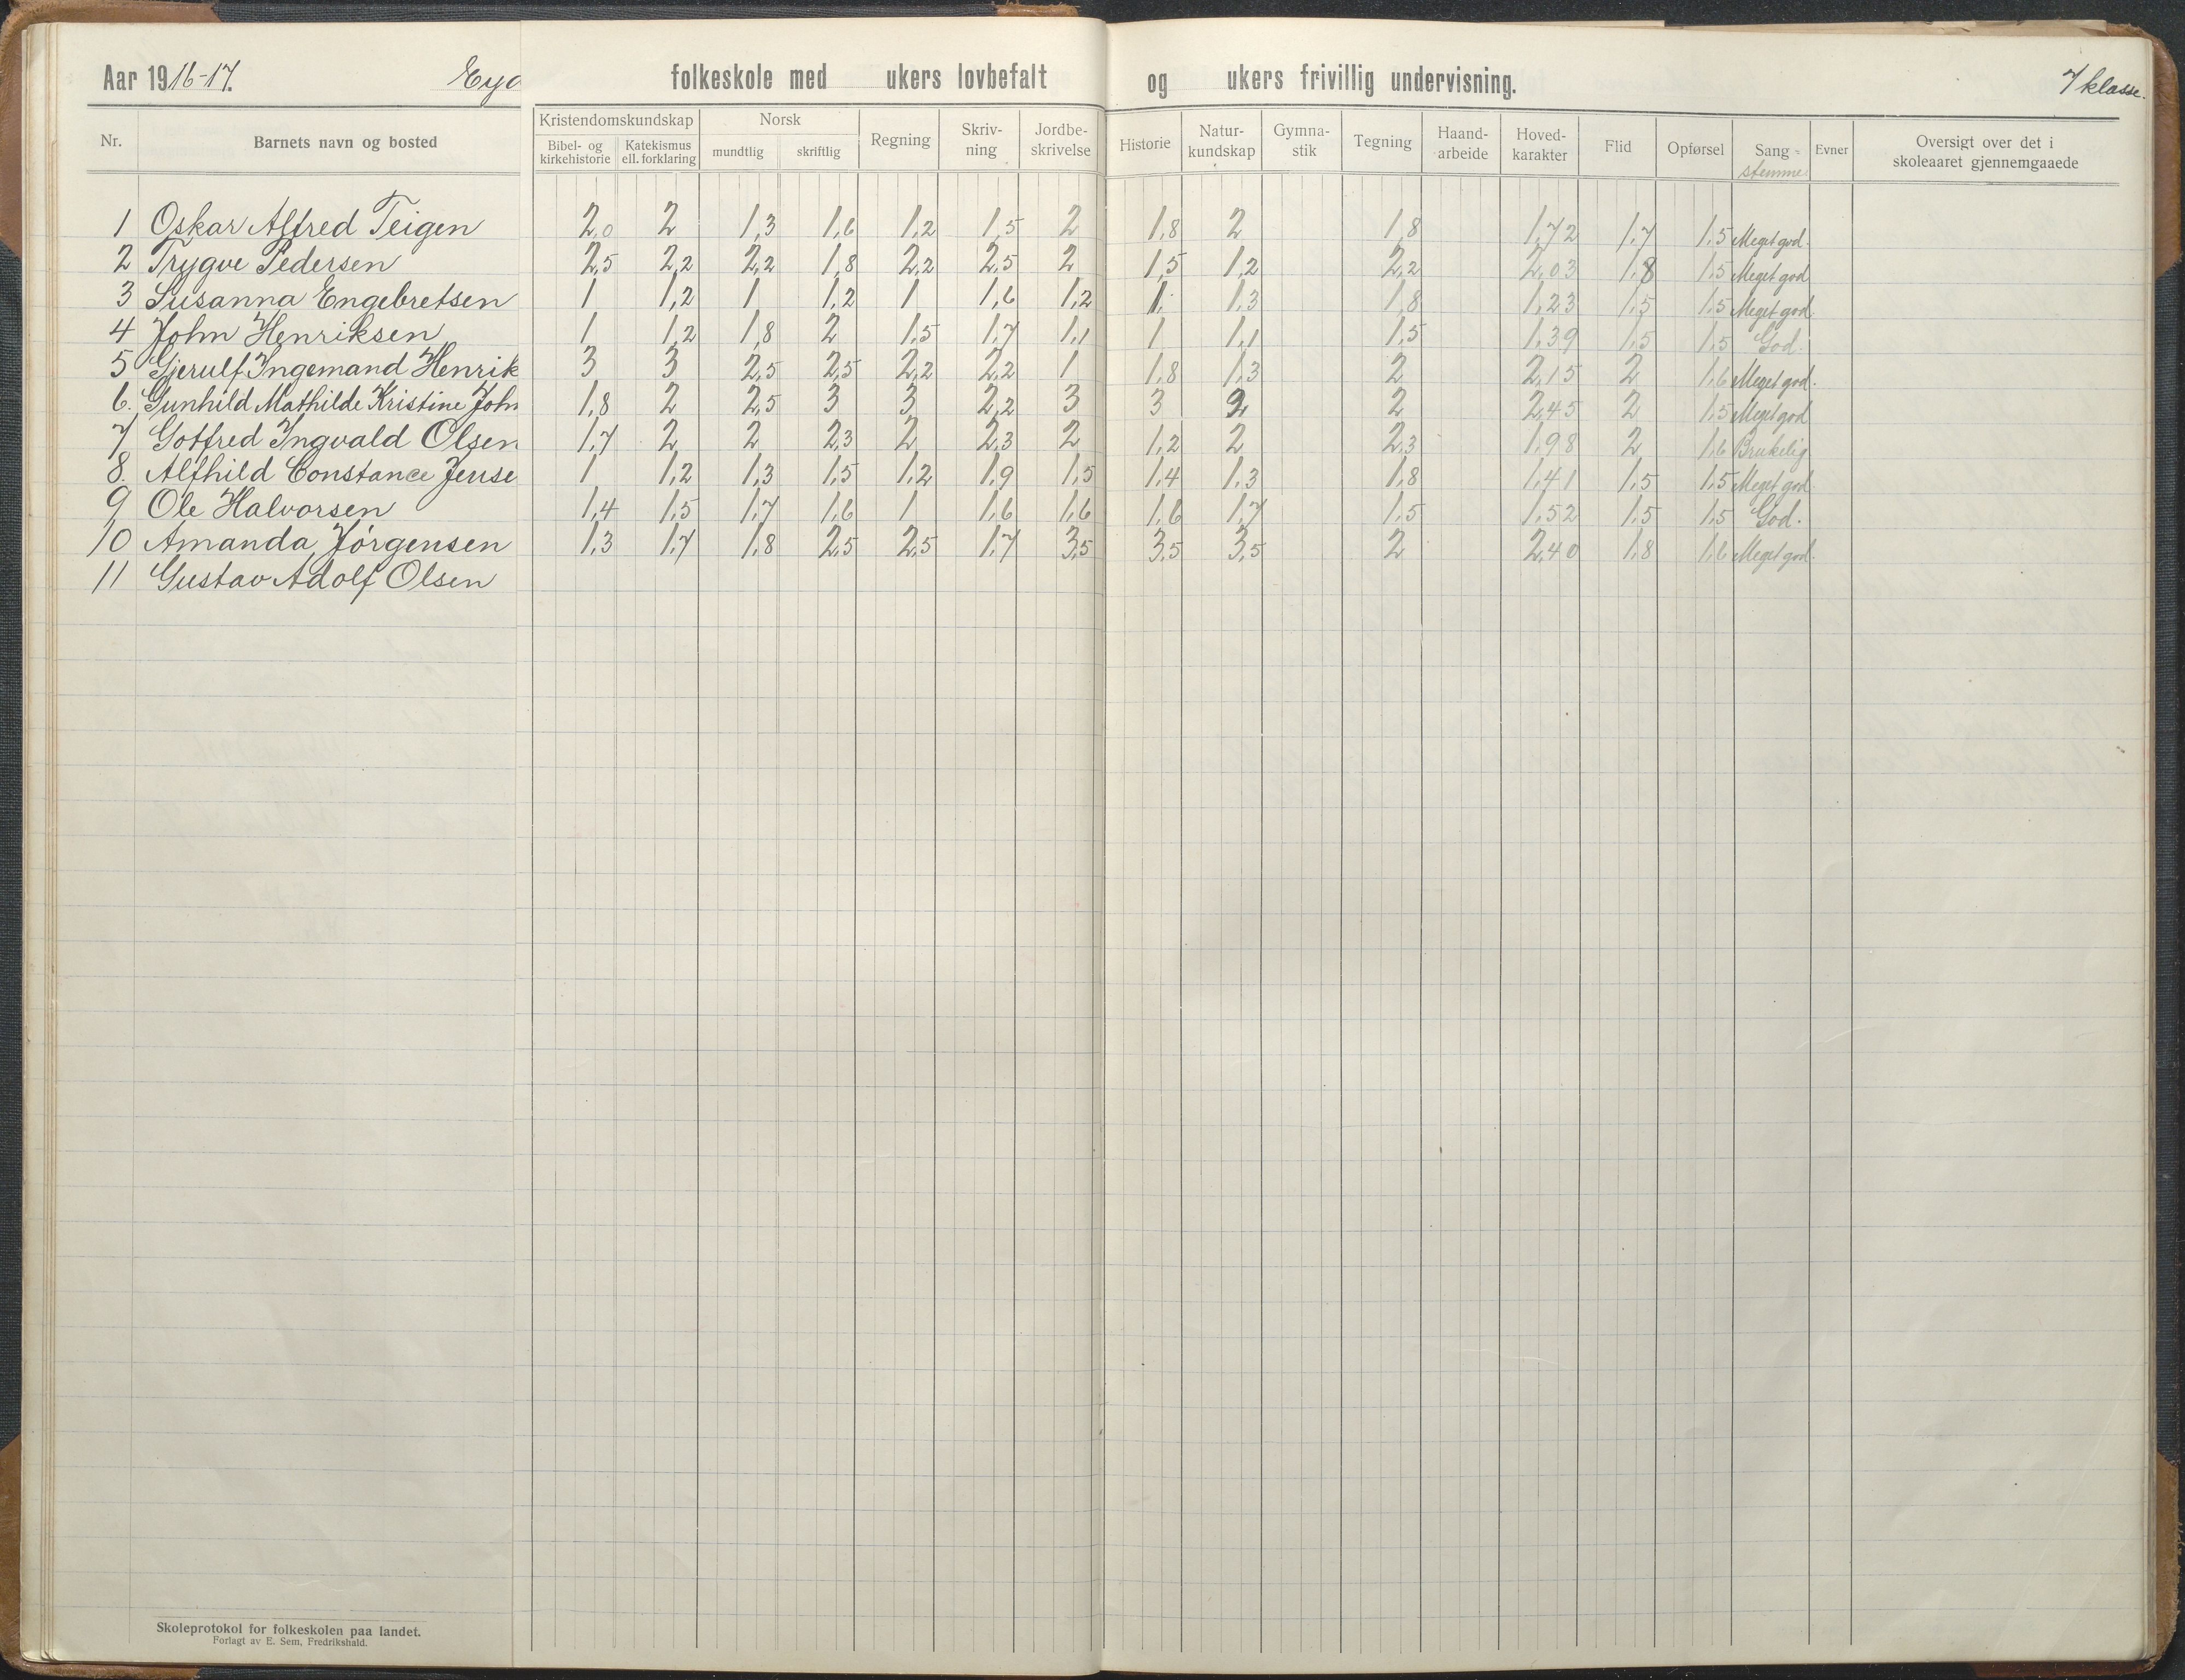 Aar 1916-17. Eyd folkeskole med ukers lovbefalt og ukers frivillig undervisning. 7 klasse.
Nr. Barnets navn og bosted Kristendomskundskap Bibel- og kirkehistorie Katekismus ell. forklaring Norsk mundtlig skriftlig Regning Skriv-ning Jordbe-skrivelse Historie Natur-kundskap Gymna-stik Tegning Haand-arbeide Hoved-karakter Flid Opførsel Sang-stemme Evner Oversigt over det i skoleaaret gjennemgaaede
1 Oskar Alfred Teigen 2,0 2 1,3 1,6 1,2 1,5 2 1,8 2 1,8 1,72 1,7 1,5 Meget god.
2 Trygve Pedersen 2,5 2,2 2,2 1,8 2,2 2,5 2 1,5 1,2 2,2 2,03 1,8 1,5 Meget god
3 Susanna Engebretsen 1 1,2 1 1,2 1 1,6 1,2 1, 1,3 1,8 1,23 1,5 1,5 Meget god.
4 John Henriksen 1 1,2 1,8 2 1,5 1,7 1,1 1 1,1 1,5 1,39 1,5 1,5 God.
5 Gjerulf Ingemand Henrik 3 3 2,5 2,5 2,2 2,2 1 1,8 1,3 2 2,15 2 1,6 Meget god.
6. Gunhild Mathilde Kristine Joh 1,8 2 2,5 3 3 2,2 3 3 2 2 2,45 2 1,5 Meget god
7 Gotfred Ingvald Olsen 1,7 2 2 2,3 2 2,3 2 1,2 2 2,3 1,98 2 1,6 Brukelig
8. Alfhild Constance Jense 1 1,2 1,3 1,5 1,2 1,9 1,5 1,4 1,3 1,8 1,41 1,5 1,5 Meget god
9 Ole Halvorsen 1,4 1,5 1,7 1,6 1 1,6 1,6 1,6 1,7 1,5 1,52 1,5 1,5 God.
10 Amanda Jørgensen 1,3 1,7 1,8 2,5 2,5 1,7 3,5 3,5 3,5 2 2,40 1,8 1,6 Meget god.
11 Gustav Adolf Olsen
Skoleprotokol for folkeskolen paa landet.
Forlagt av E. Sem, Fredrikshald.